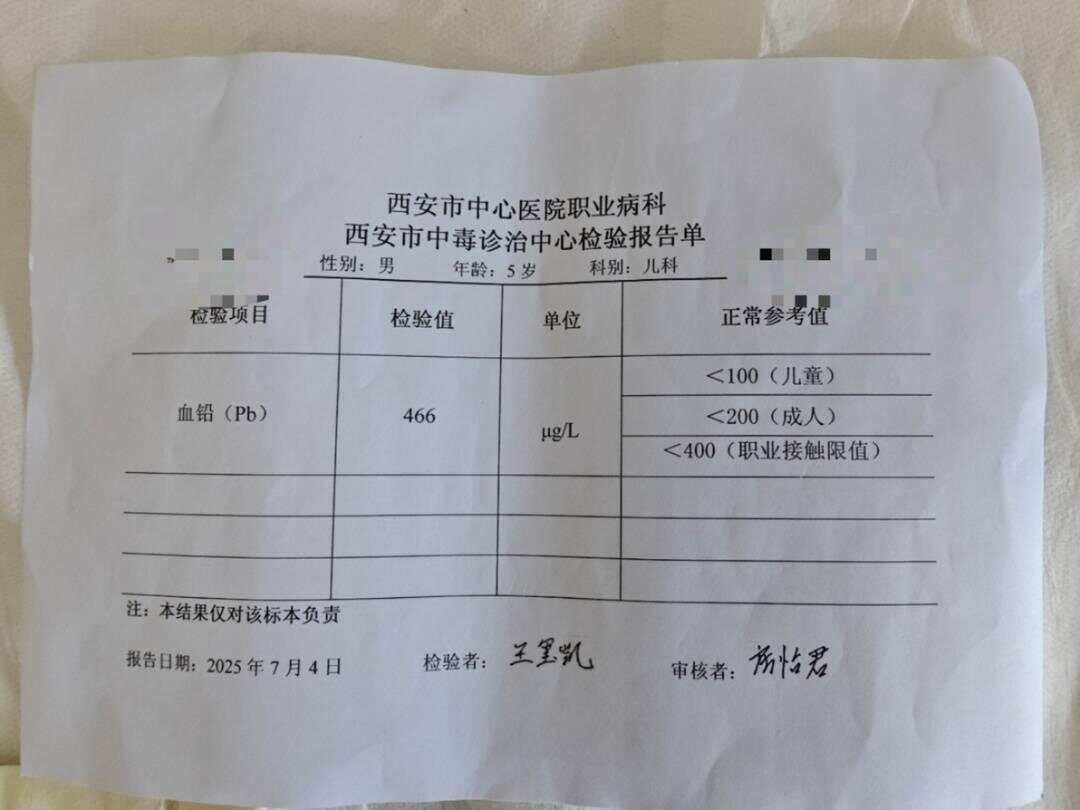 西安市中心医院职业病科
西安市中毒诊治中心检验报告单
性别：男 年龄：5岁 科别：儿科
检验项目 检验值 单位 正常参考值
血铅（Pb） 466 μg/L
＜100（儿童）
＜200（成人）
＜400（职业接触限值）
注：本结果仅对该标本负责
报告日期：2025年7月4日 检验者： 审核者：